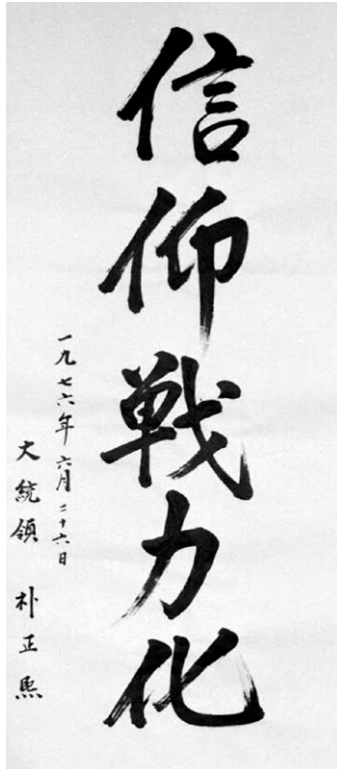 信仰戦力化
一九七六年 六月 二十六日
大統領 朴正熙